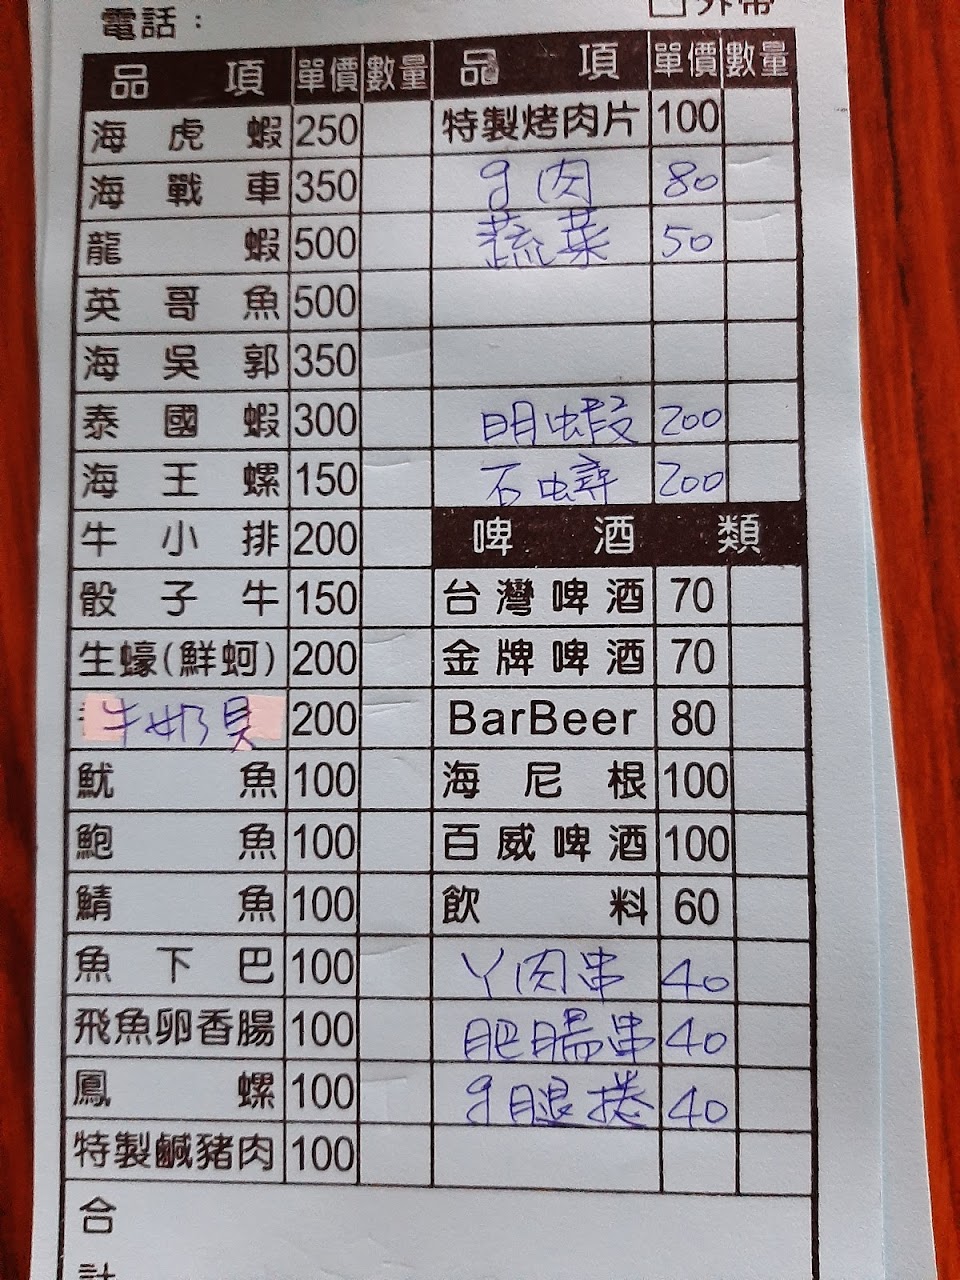 電話：
□外帶
品項 單價 數量
海虎蝦 250
海戰車 350
龍蝦 500
英哥魚 500
海吳郭 350
泰國蝦 300
海王螺 150
牛小排 200
骰子牛 150
生蠔(鮮蚵) 200
牛奶貝 200
魷魚 100
鮑魚 100
鯖魚 100
魚下巴 100
飛魚卵香腸 100
鳳螺 100
特製鹹豬肉 100
合
計
品項 單價 數量
特製烤肉片 100
g肉 80
蔬菜 50
明蝦 200
石蟳 200
啤酒類
台灣啤酒 70
金牌啤酒 70
BarBeer 80
海尼根 100
百威啤酒 100
飲料 60
丫肉串 40
肥腸串 40
g腿捲 40